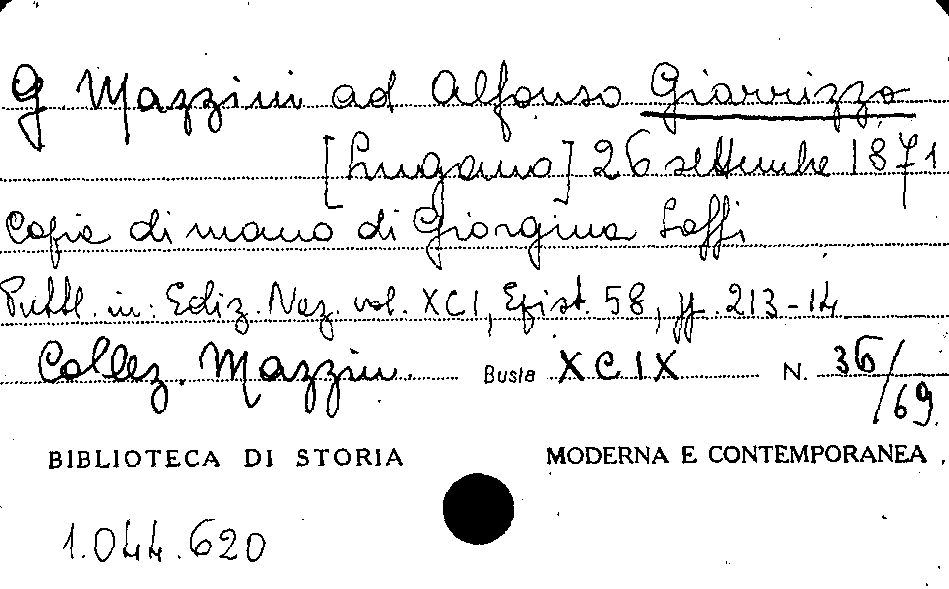 G Mazzini ad Alfonso Giarrizzo
[Lugano] 26 settembre 1871
Copia di mano di Giorgina Saffi
Pubbl. in: Ediz. Naz. vol. XCI, Epist. 58, pp. 213-14
Collez. Mazzini. Busta XCIX N. 36/69
BIBLIOTECA DI STORIA MODERNA E CONTEMPORANEA
1.044.620